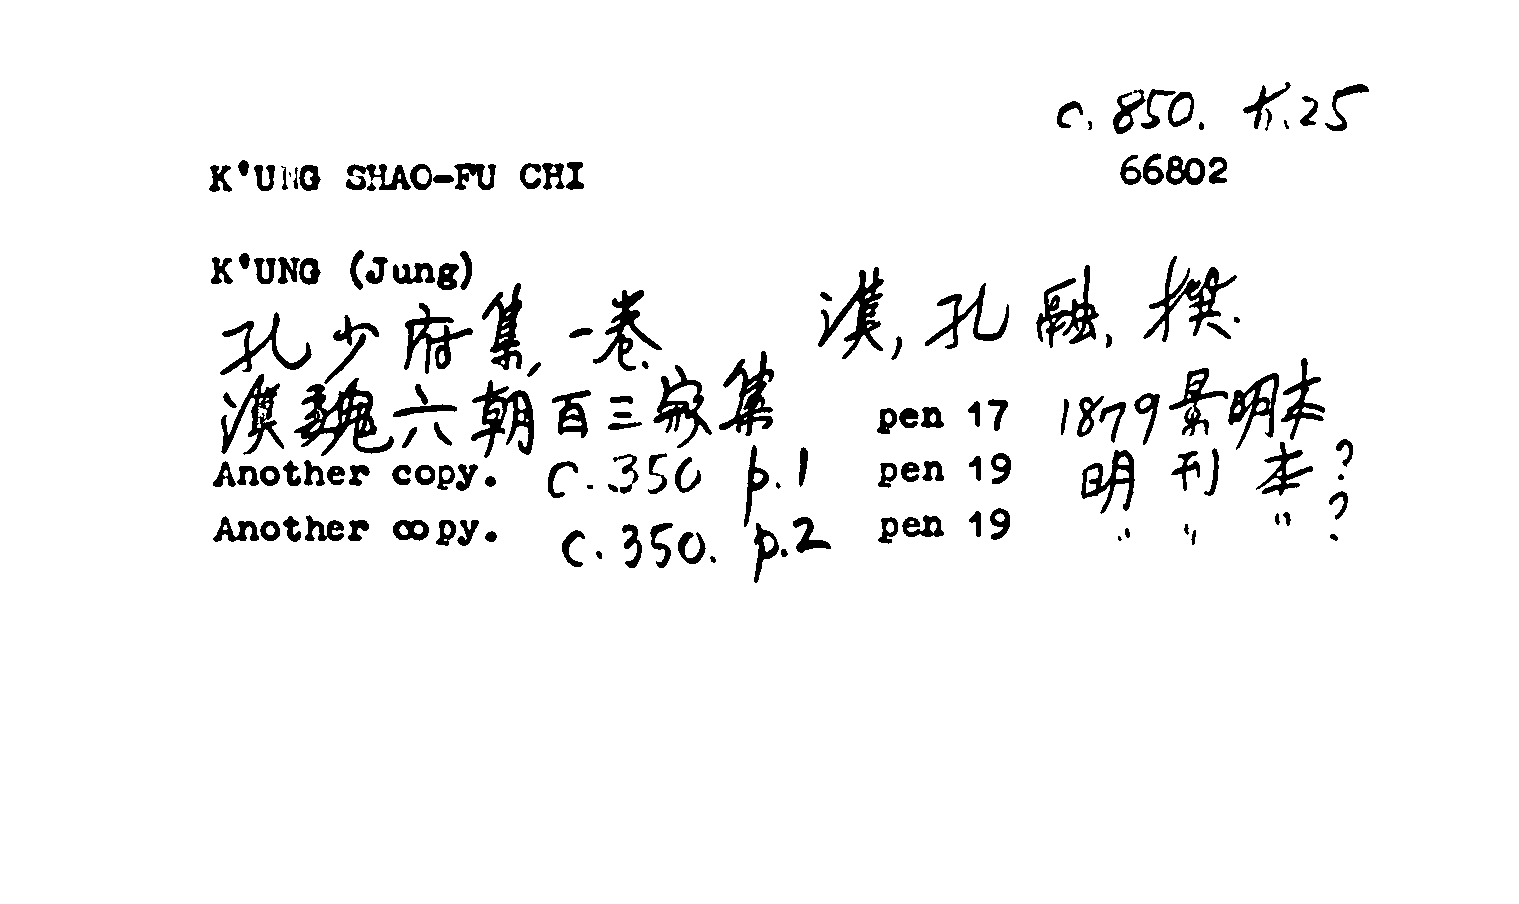 C. 850. K.25
K'UNG SHAO-FU CHI 66802
K'UNG (Jung)
孔少府集, 一卷. 漢, 孔融, 撰.
漢魏六朝百三家集 pen 17 1879景明本
Another copy. C.350 p.1 pen 19 明刊本?
Another copy. C.350. p.2 pen 19 " " " ?